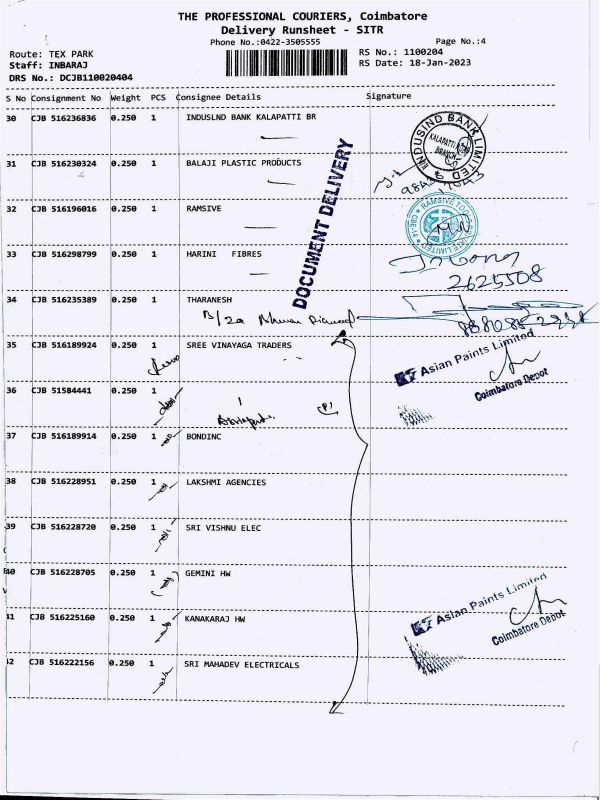 THE PROFESSIONAL COURIERS, Coimbatore
Delivery Runsheet - SITR
Phone No.:0422-3505555 Page No.:4
Route: TEX PARK RS No.: 1100204
Staff: INBARAJ RS Date: 18-Jan-2023
DRS No.: DCJB110020404
S No Consignment No Weight PCS Consignee Details Signature
30 CJB 516236836 0.250 1 INDUSLND BANK KALAPATTI BR
INDUSIND BANK LIMITED
KALAPATTI
BRANCH
31 CJB 516230324 0.250 1 BALAJI PLASTIC PRODUCTS
DOCUMENT DELIVERY
32 CJB 516196016 0.250 1 RAMSIVE
33 CJB 516298799 0.250 1 HARINI FIBRES
2625508
34 CJB 516235389 0.250 1 THARANESH
35 CJB 516189924 0.250 1 SREE VINAYAGA TRADERS
Asian Paints Limited
Coimbatore Depot
36 CJB 51584441 0.250 1
37 CJB 516189914 0.250 1 BONDINC
38 CJB 516228951 0.250 1 LAKSHMI AGENCIES
39 CJB 516228720 0.250 1 SRI VISHNU ELEC
40 CJB 516228705 0.250 1 GEMINI HW
Asian Paints Limited
Coimbatore Depot
41 CJB 516225160 0.250 1 KANAKARAJ HW
42 CJB 516222156 0.250 1 SRI MAHADEV ELECTRICALS